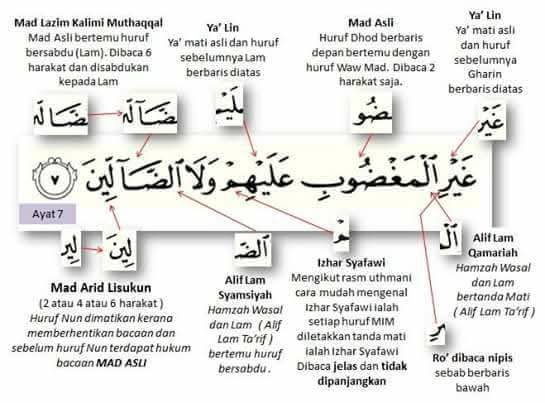 Mad Lazim Kalimi Muthaqqal
Mad Asli bertemu huruf
bersabdu (Lam). Dibaca 6
harakat dan disabdukan
kepada Lam
Ya’ Lin
Ya’ mati asli dan huruf
sebelumnya Lam
berbaris diatas
Mad Asli
Huruf Dhod berbaris
depan bertemu dengan
huruf Waw Mad. Dibaca 2
harakat saja.
Ya’ Lin
Ya’ mati asli
dan huruf
sebelumnya
Gharin
berbaris diatas
ضَّالَّ
ضَّآلِّ
لَيْ
ضُو
غَيْرِ
غَيْرِ الْمَغْضُوبِ عَلَيْهِمْ وَلَا الضَّآلِّينَ ٧
Ayat 7
لِير
لِّينَ
الضَّ
مْ
الْ
رِ
Mad Arid Lisukun
(2 atau 4 atau 6 harakat )
Huruf Nun dimatikan kerana
memberhentikan bacaan dan
sebelum huruf Nun terdapat hukum
bacaan MAD ASLI
Alif Lam
Syamsiyah
Hamzah Wasal
dan Lam ( Alif
Lam Ta’rif )
bertemu huruf
bersabdu .
Izhar Syafawi
Mengikut rasm uthmani
cara mudah mengenal
Izhar Syafawi ialah
setiap huruf MIM
diletakkan tanda mati
ialah Izhar Syafawi
Dibaca jelas dan tidak
dipanjangkan
Alif Lam
Qamariah
Hamzah Wasal
dan Lam
bertanda Mati
( Alif Lam Ta’rif )
Ro’ dibaca nipis
sebab berbaris
bawah